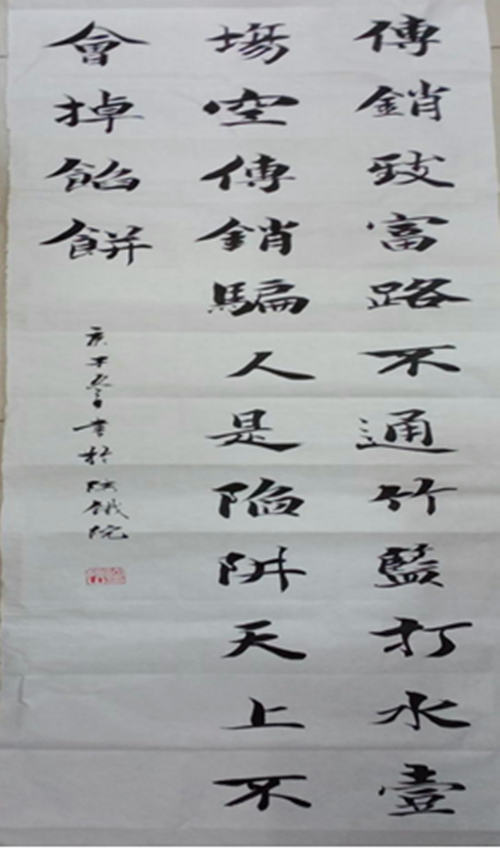 傳銷致富路不通竹藍打水壹
塲空傳銷騙人是陷阱天上不
會掉餡餅
庚子冬月書於陝餓院